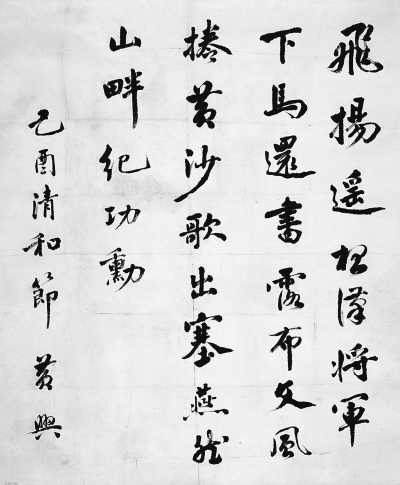 飛揚遥想漢將軍
下馬還書露布文風
捲黃沙歌出塞燕然
山畔紀功勳
乙酉清和節 黃興